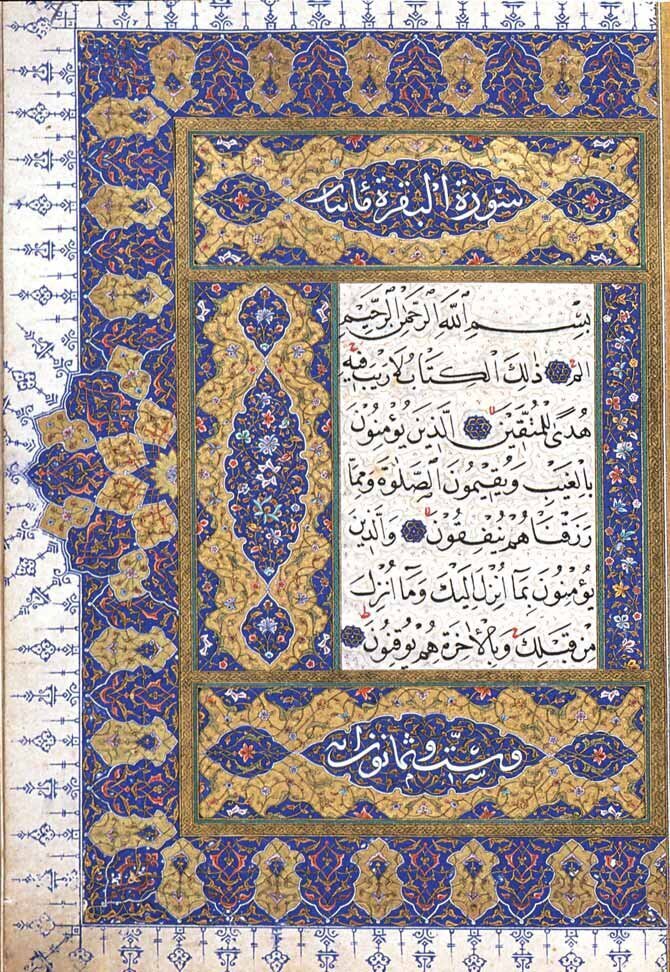 سورة البقرة مائتان
بِسْمِ اللّٰهِ الرَّحْمٰنِ الرَّحِيمِ
الم ذٰلِكَ الْكِتَابُ لَا رَيْبَ فِيهِ
هُدًى لِلْمُتَّقِينَ الَّذِينَ يُؤْمِنُونَ
بِالْغَيْبِ وَيُقِيمُونَ الصَّلٰوةَ وَمِمَّا
رَزَقْنَاهُمْ يُنْفِقُونَ وَالَّذِينَ
يُؤْمِنُونَ بِمَا اُنْزِلَ اِلَيْكَ وَمَا اُنْزِلَ
مِنْ قَبْلِكَ وَبِالْاٰخِرَةِ هُمْ يُوقِنُونَ
وستّ وثمانون اية